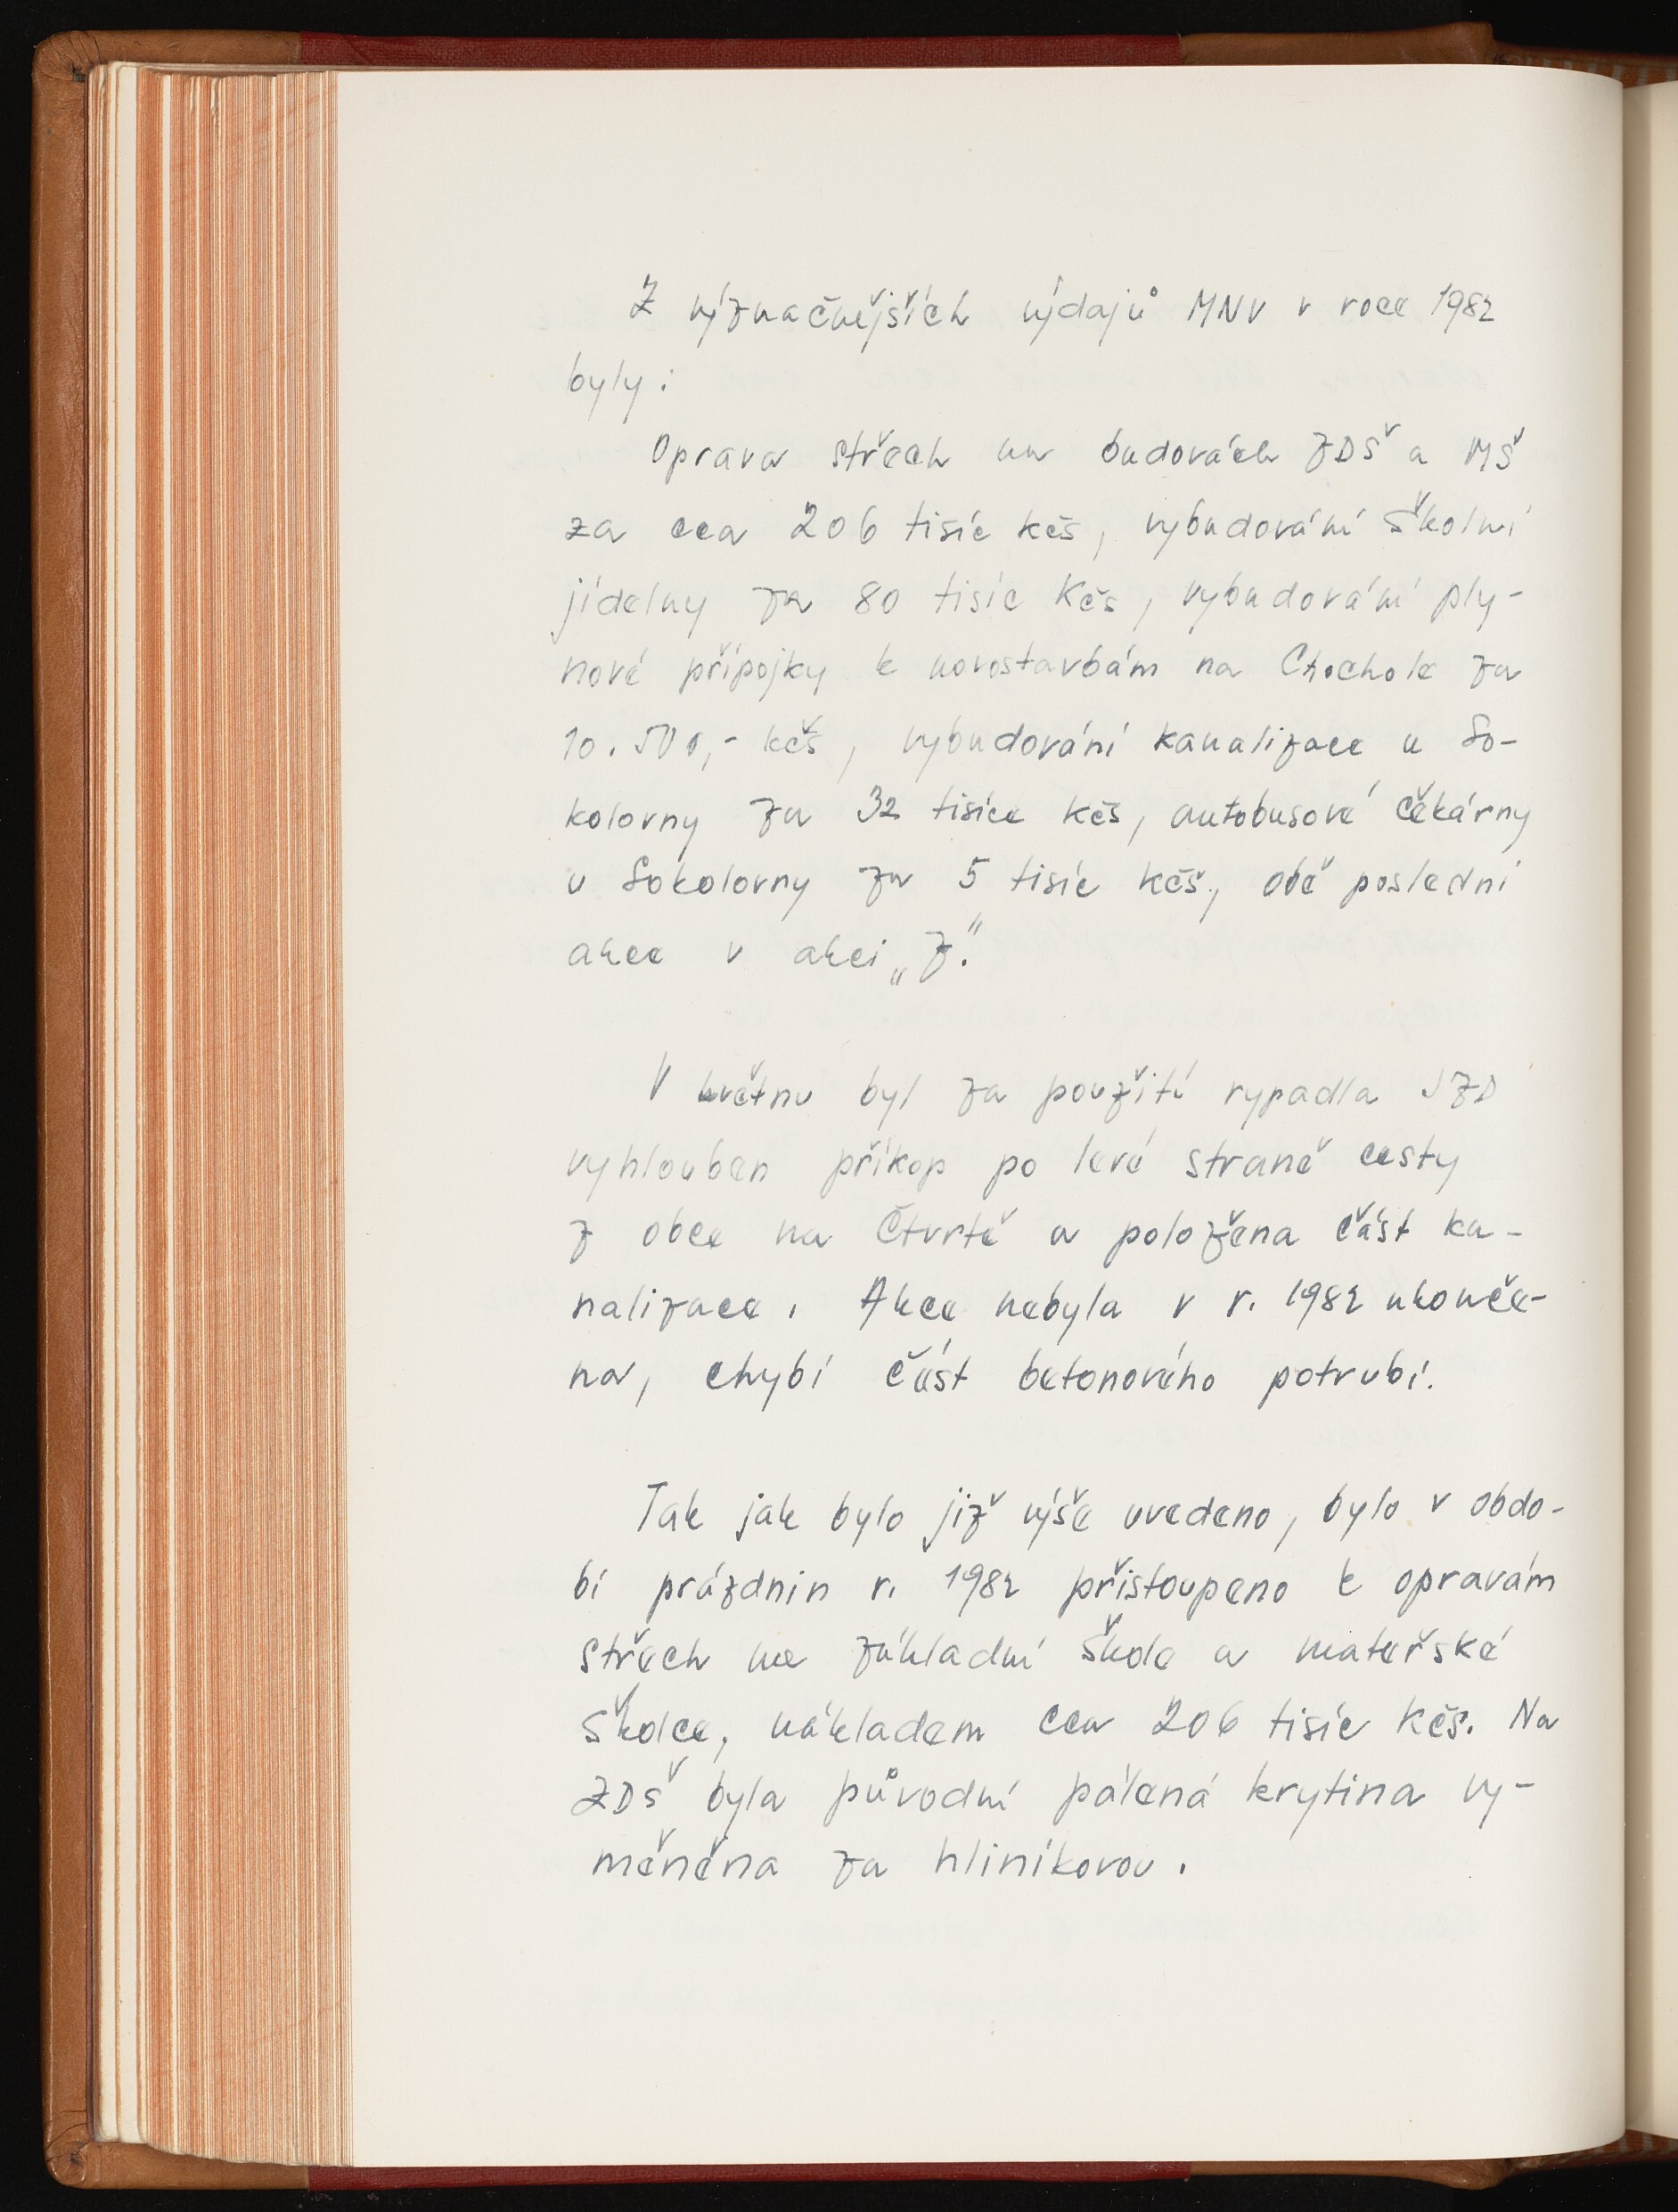 Z význačnějších výdajů MNV v roce 1982
byly:
Oprava střech na budovách ZDŠ a MŠ
za cca 206 tisíc Kčs, vybudování školní
jídelny za 80 tisíc Kčs, vybudování ply-
nové přípojky k novostavbám na Chochole za
10.500,- Kčs, vybudování kanalizace u So-
kolovny za 32 tisíce Kčs, autobusové čekárny
u Sokolovny za 5 tisíc Kčs, obě poslední
akce v akci „Z."
V květnu byl za použití rypadla JZD
vyhlouben příkop po levé straně cesty
z obce na Čtvrtě a položena část ka-
nalizace. Akce nebyla v r. 1982 ukonče-
na, chybí část betonového potrubí.
Tak jak bylo již výše uvedeno, bylo v obdo-
bí prázdnin r. 1982 přistoupeno k opravám
střech na základní škole a mateřské
školce, nákladem cca 206 tisíc Kčs. Na
ZDŠ byla původní pálená krytina vy-
měněna za hliníkovou.